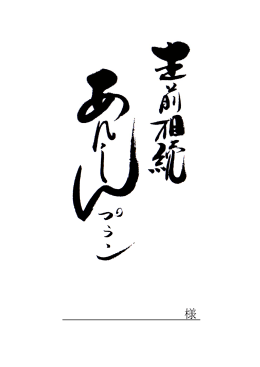 生前相続
あんしん
プラン
様